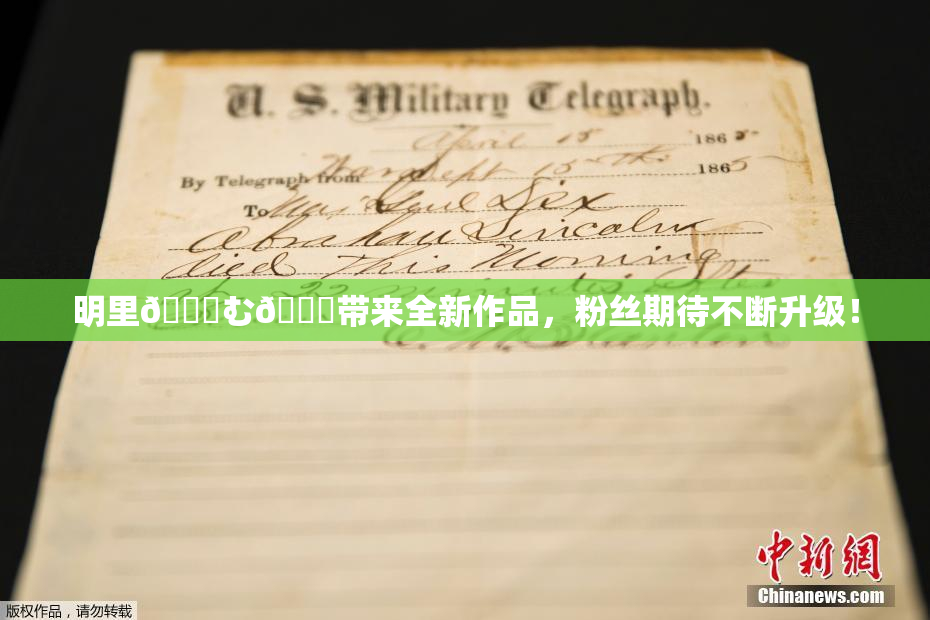 U. S. Military Telegraph.
April 15 1865
By Telegraph from War Dept 15th 1865
To Maj Genl Dix
Abraham Lincoln
died This Morning
22 minutes after
明里ð\u009f\u0098\u008aむð\u009f\u0098\u008a带来全新作品，粉丝期待不断升级！
中新网
Chinanews.com
版权作品，请勿转载